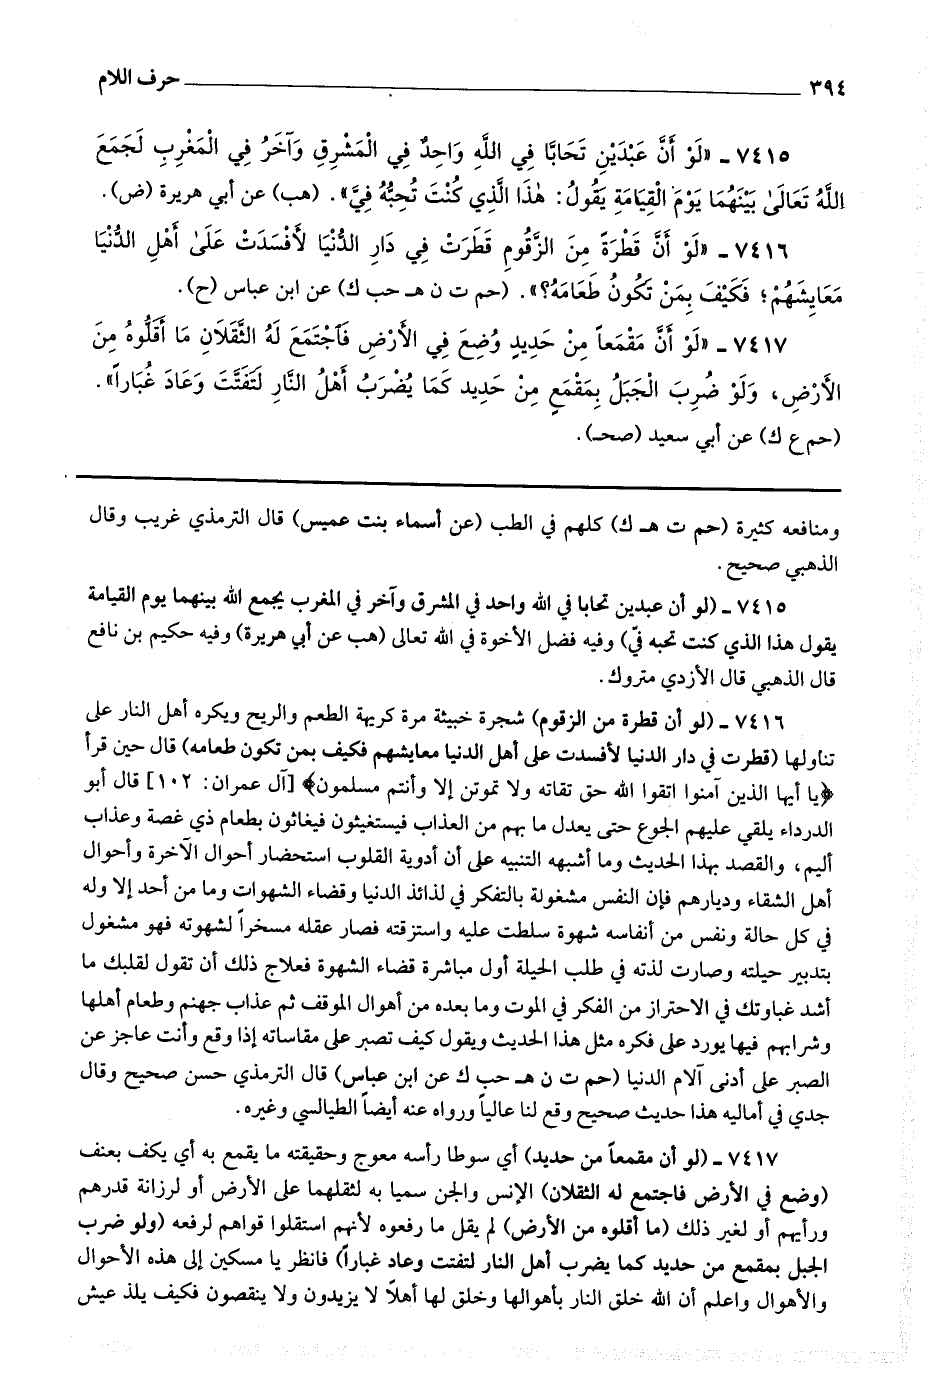 ٣٩٤ حرف اللام
٧٤١٥ ـ «لَوْ أَنَّ عَبْدَيْنِ تَحَابَّا فِي اللَّهِ وَاحِدٌ فِي الْمَشْرِقِ وَآخَرُ فِي الْمَغْرِبِ لَجَمَعَ
اللَّهُ تَعَالَىٰ بَيْنَهُمَا يَوْمَ الْقِيَامَةِ يَقُولُ: هٰذَا الَّذِي كُنْتَ تُحِبُّهُ فِيَّ». (هب) عن أبي هريرة (ض).
٧٤١٦ ـ «لَوْ أَنَّ قَطْرَةً مِنَ الزَّقُومِ قَطَرَتْ فِي دَارِ الدُّنْيَا لَأَفْسَدَتْ عَلَىٰ أَهْلِ الدُّنْيَا
مَعَايِشَهُمْ؛ فَكَيْفَ بِمَنْ تَكُونُ طَعَامَهُ؟». (حم ت ن هـ حب ك) عن ابن عباس (ح).
٧٤١٧ ـ «لَوْ أَنَّ مَقْمَعاً مِنْ حَدِيدٍ وُضِعَ فِي الأَرْضِ فَاجْتَمَعَ لَهُ الثَّقَلَانِ مَا أَقَلُّوهُ مِنَ
الأَرْضِ، وَلَوْ ضُرِبَ الْجَبَلُ بِمَقْمَعٍ مِنْ حَدِيد كَمَا يُضْرَبُ أَهْلُ النَّارِ لَتَفَتَّتَ وَعَادَ غُبَاراً».
(حم ع ك) عن أبي سعيد (صحـ).
ومنافعه كثيرة (حم ت هـ ك) كلهم في الطب (عن أسماء بنت عميس) قال الترمذي غريب وقال
الذهبي صحيح.
٧٤١٥ ـ (لو أن عبدين تحابا في الله واحد في المشرق وآخر في المغرب يجمع الله بينهما يوم القيامة
يقول هذا الذي كنت تحبه فيّ) وفيه فضل الأخوة في الله تعالى (هب عن أبي هريرة) وفيه حكيم بن نافع
قال الذهبي قال الأزدي متروك.
٧٤١٦ ـ (لو أن قطرة من الزقوم) شجرة خبيثة مرة كريهة الطعم والريح ويكره أهل النار على
تناولها (قطرت في دار الدنيا لأفسدت على أهل الدنيا معايشهم فكيف بمن تكون طعامه) قال حين قرأ
﴿يا أيها الذين آمنوا اتقوا الله حق تقاته ولا تموتن إلا وأنتم مسلمون﴾ [آل عمران: ١٠٢] قال أبو
الدرداء يلقي عليهم الجوع حتى يعدل ما بهم من العذاب فيستغيثون فيغاثون بطعام ذي غصة وعذاب
أليم، والقصد بهذا الحديث وما أشبهه التنبيه على أن أدوية القلوب استحضار أحوال الآخرة وأحوال
أهل الشقاء وديارهم فإن النفس مشغولة بالتفكر في لذائذ الدنيا وقضاء الشهوات وما من أحد إلا وله
في كل حالة ونفس من أنفاسه شهوة سلطت عليه واسترقته فصار عقله مسخراً لشهوته فهو مشغول
بتدبير حيلته وصارت لذته في طلب الحيلة أول مباشرة قضاء الشهوة فعلاج ذلك أن تقول لقلبك ما
أشد غباوتك في الاحتراز من الفكر في الموت وما بعده من أهوال الموقف ثم عذاب جهنم وطعام أهلها
وشرابهم فيها يورد على فكره مثل هذا الحديث ويقول كيف تصبر على مقاساته إذا وقع وأنت عاجز عن
الصبر على أدنى آلام الدنيا (حم ت ن هـ حب ك عن ابن عباس) قال الترمذي حسن صحيح وقال
جدي في أماليه هذا حديث صحيح وقع لنا عالياً ورواه عنه أيضاً الطيالسي وغيره.
٧٤١٧ ـ (لو أن مقمعاً من حديد) أي سوطا رأسه معوج وحقيقته ما يقمع به أي يكف بعنف
(وضع في الأرض فاجتمع له الثقلان) الإنس والجن سميا به لثقلهما على الأرض أو لرزانة قدرهم
ورأيهم أو لغير ذلك (ما أقلوه من الأرض) لم يقل ما رفعوه لأنهم استقلوا قواهم لرفعه (ولو ضرب
الجبل بمقمع من حديد كما يضرب أهل النار لتفتت وعاد غباراً) فانظر يا مسكين إلى هذه الأحوال
والأهوال واعلم أن الله خلق النار بأهوالها وخلق لها أهلاً لا يزيدون ولا ينقصون فكيف يلذ عيش